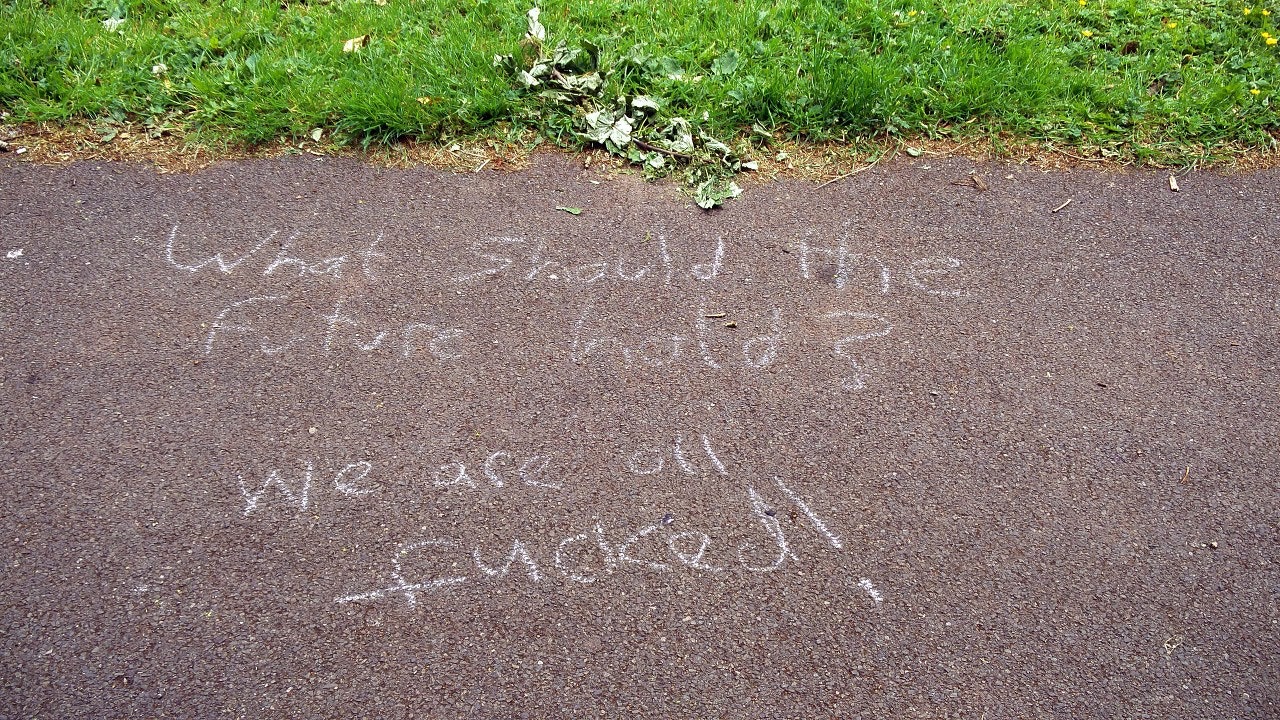 What Should the
Future hold?
We are all
fucked!